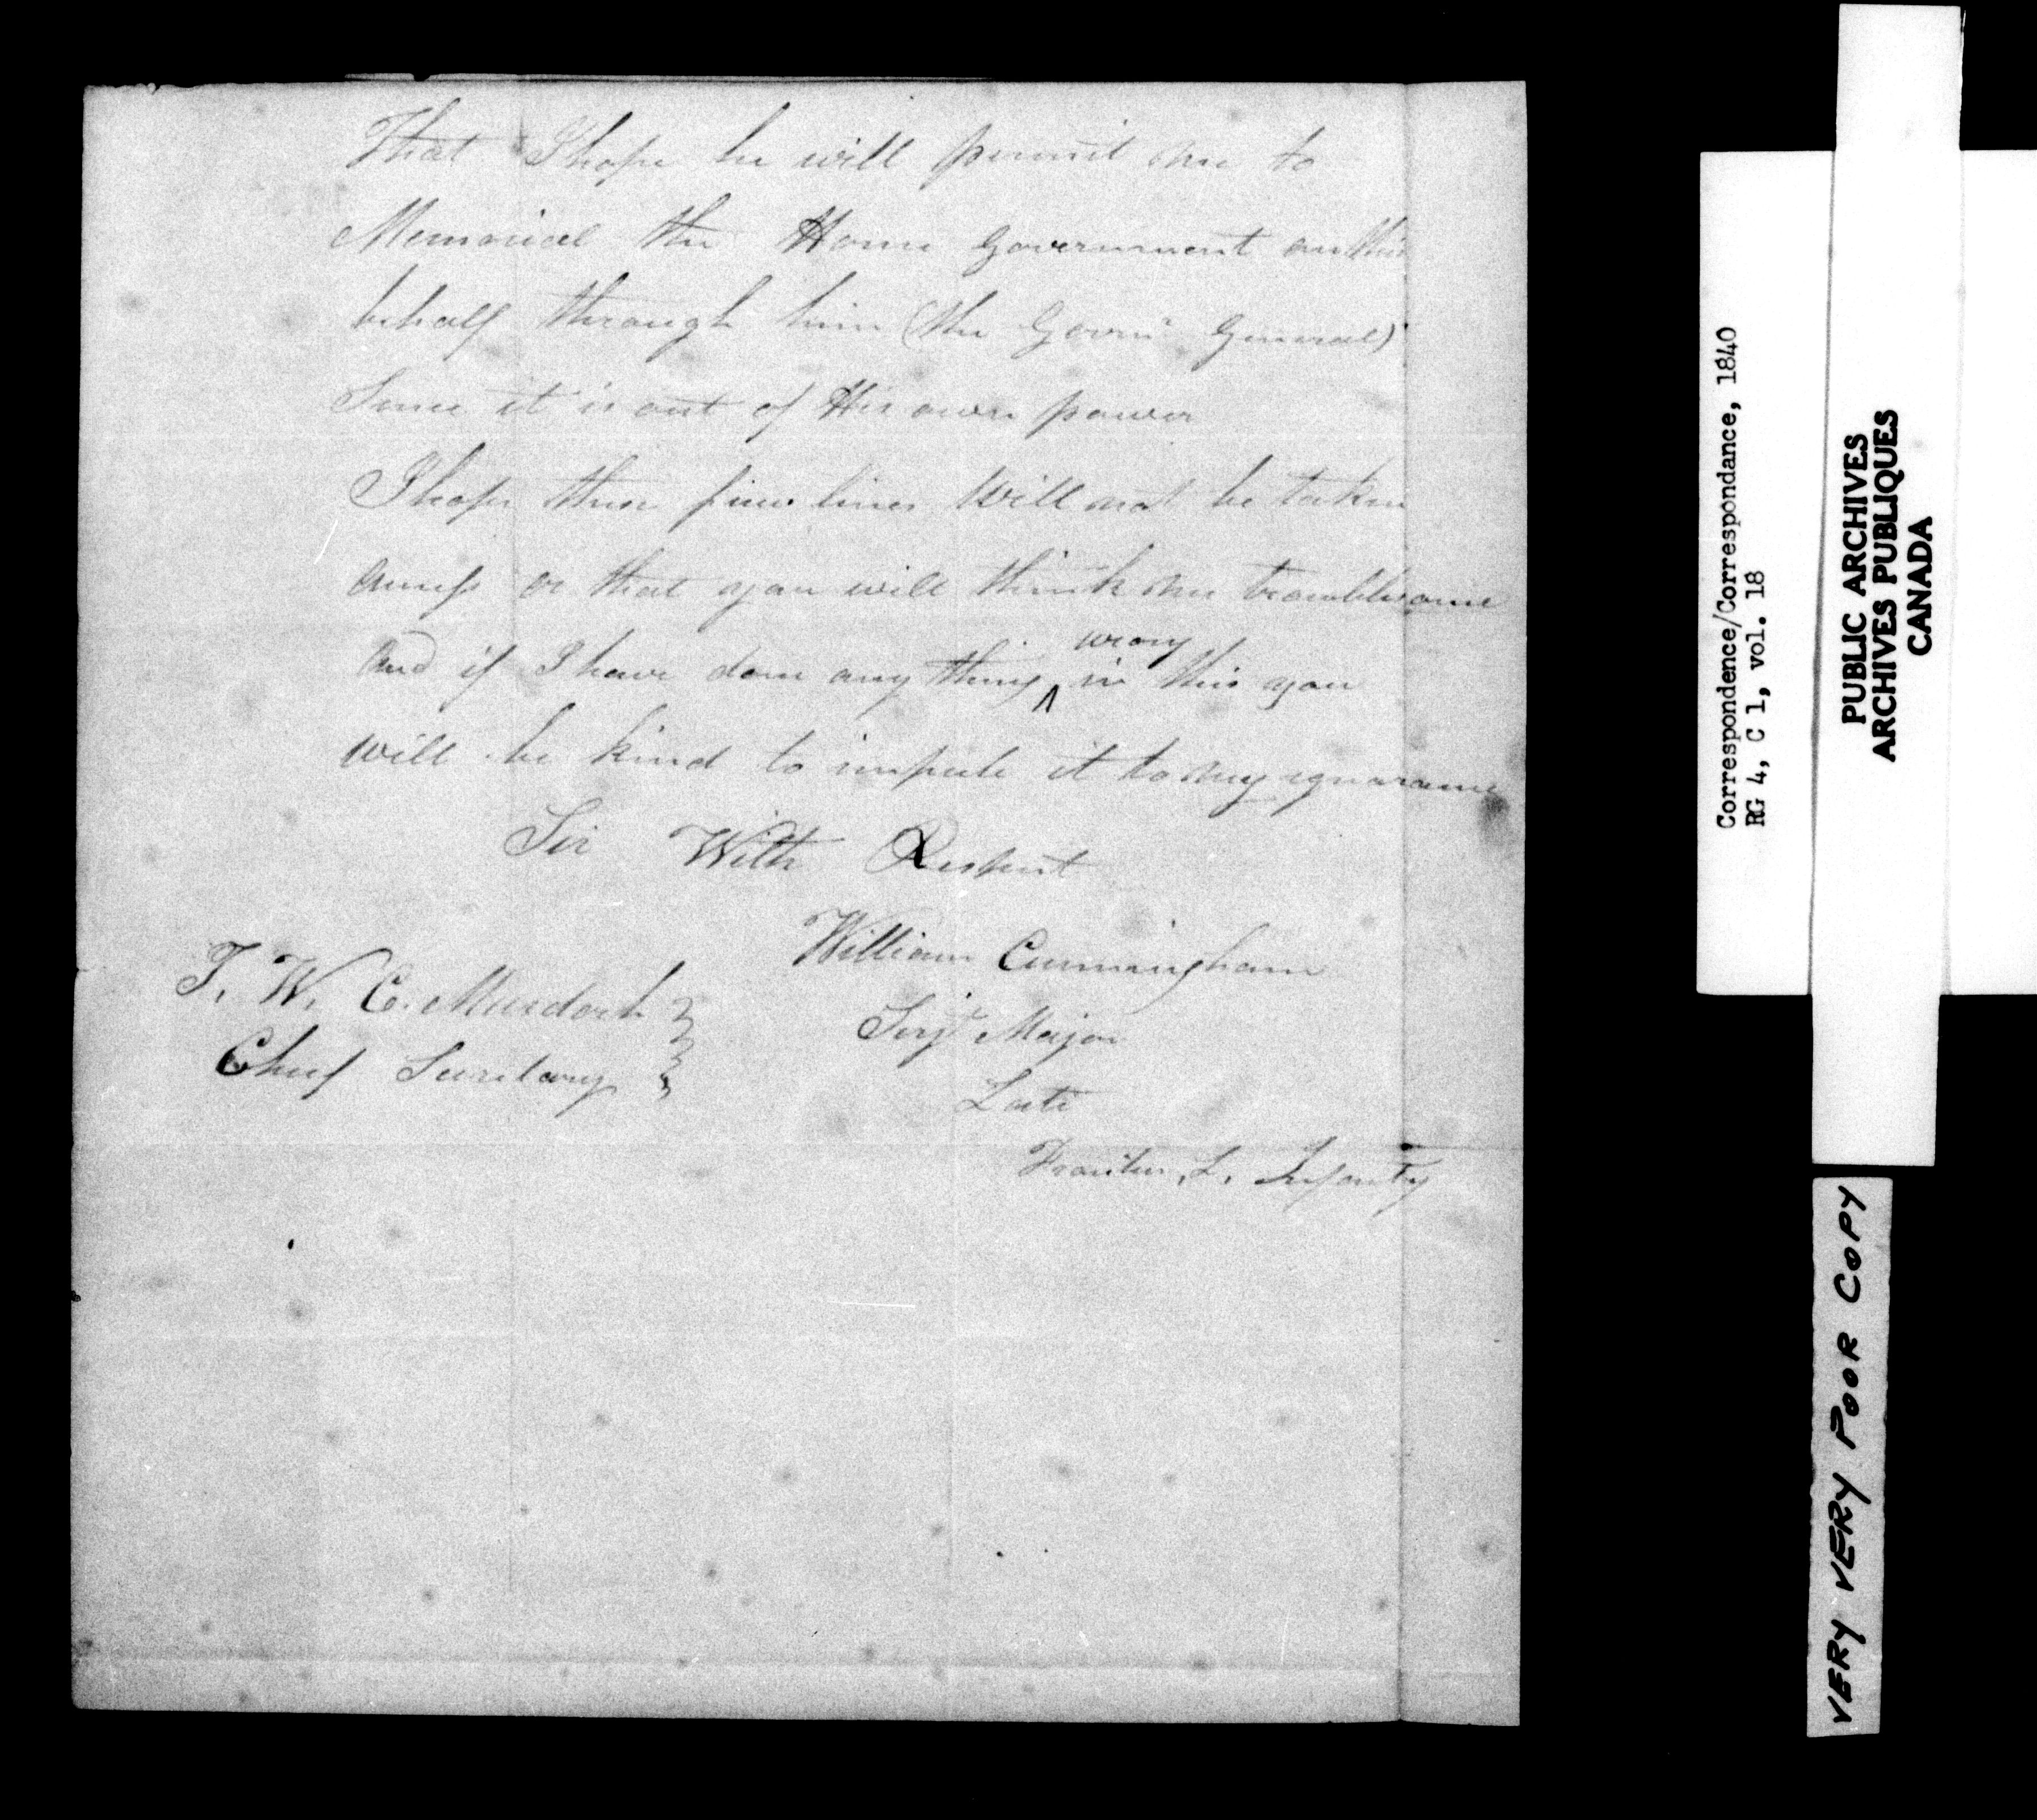 That I hope he will permit me to
Memorial the Home Government on this
behalf through him (the Govrn General)
Since it is out of His own power
I hope these few lines Will not be taken
amiss or that you will think me troublesome
and if I have done any thing ^ wrong in this you
will be kind to impute it to my ignorance
Sir With Respect
William Cunningham
Serjt Major
Late
Frontier L. Infantry
T. W. C. Murdoch
Chief Secretary
Correspondence/Correspondance, 1840
RG 4, C 1, vol. 18
PUBLIC ARCHIVES
ARCHIVES PUBLIQUES
CANADA
VERY VERY POOR COPY